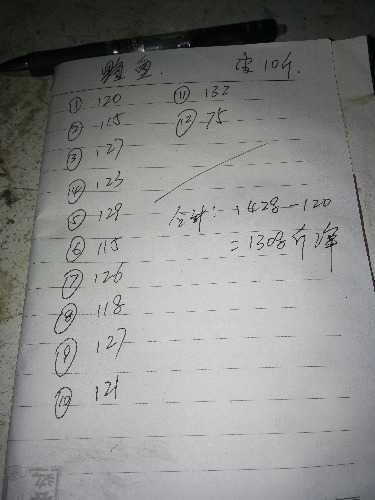 皮10斤.
① 120 ⑪ 132
② 115 ⑫ 75
③ 127
④ 123
⑤ 129
合计: 1428-120
⑥ 115
=1308斤净
⑦ 126
⑧ 118
⑨ 127
⑩ 121